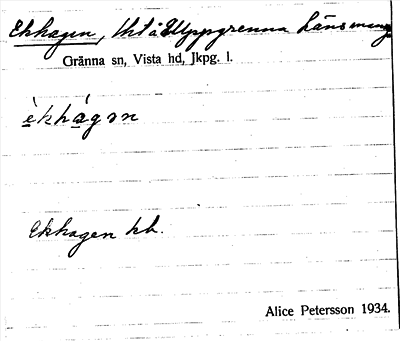 Ekhagen, tht å Uppgrenna Länsmansg
Gränna sn, Vista hd, Jkpg. l.
è̱khá̱gən
Ekhagen hb.
Alice Petersson 1934.